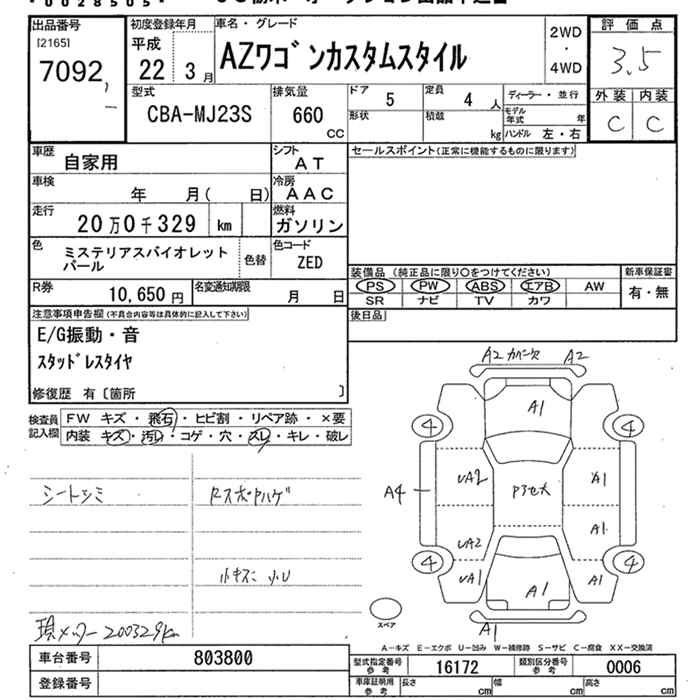 *0028505*
出品番号
[2165]
7092
初度登録年月
平成
22 3月
車名・グレード
AZワゴンカスタムスタイル
2WD
・
4WD
評価点
3.5
外装 内装
C C
型式
CBA-MJ23S
排気量
660
CC
ドア 5
定員 4 人
形状
積載 kg
ディーラー・並行
モデル年式 年
ハンドル 左・右
車歴 自家用
シフト AT
車検 年 月( 日)
冷房 AAC
走行 20万0千329 km
燃料 ガソリン
色 ミステリアスバイオレット
パール
色替
色コード ZED
R券 10,650円
名変通知期限 月 日
セールスポイント(正常に機能するものに限ります)
装備品 (純正品に限り○をつけてください)
PS PW ABS エアB AW
SR ナビ TV カワ
新車保証書
有・無
後日品
注意事項申告欄(不具合内容等は具体的に記入して下さい)
E/G振動・音
スタッドレスタイヤ
修復歴 有〔箇所 〕
検査員
記入欄
FW キズ・飛石・ヒビ割・リペア跡・×要
内装 キズ・汚レ・コゲ・穴・スレ・キレ・破レ
シートシミ
小キズ 小U
現メーター 200329km
A2 カバー欠 A2
A1
4 4
A4
UA2
A1
UA2
A1
4 4
UA1
A1
A1
A1
スペア
A-キズ E-エクボ U-凹み W-補修跡 S-サビ C-腐食 XX-交換済
車台番号 803800
登録番号
型式指定番号
参考
16172
類別区分番号
参考
0006
車庫証明用
参考
長さ cm 幅 cm 高さ cm